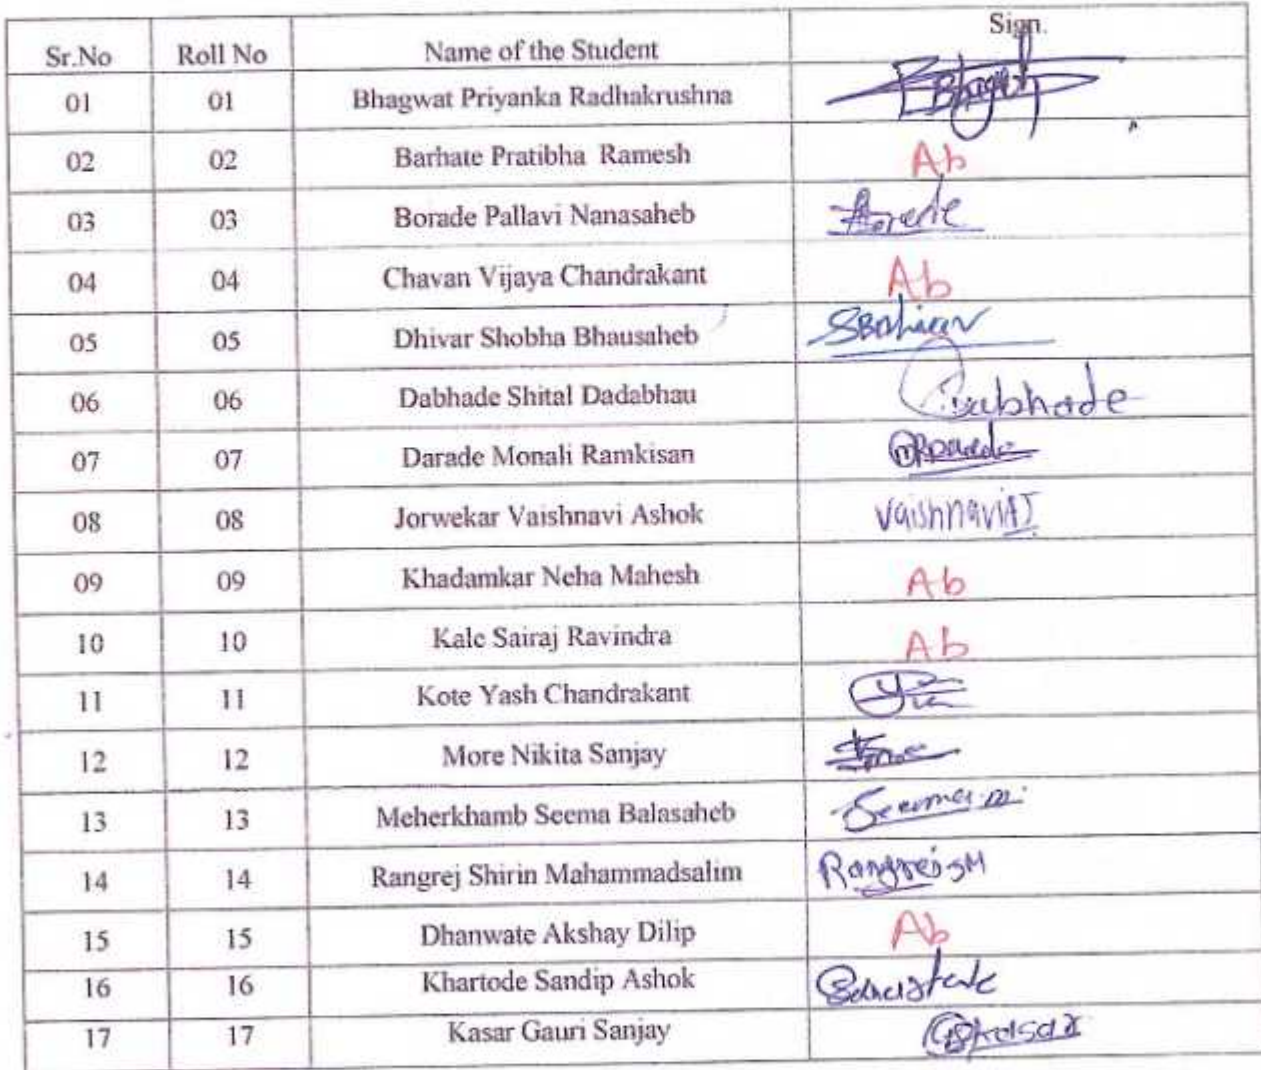 Sr.No Roll No Name of the Student Sign.
01 01 Bhagwat Priyanka Radhakrushna
02 02 Barhate Pratibha Ramesh Ab
03 03 Borade Pallavi Nanasaheb
04 04 Chavan Vijaya Chandrakant Ab
05 05 Dhivar Shobha Bhausaheb
06 06 Dabhade Shital Dadabhau Dabhade
07 07 Darade Monali Ramkisan
08 08 Jorwekar Vaishnavi Ashok VaishnaviAJ
09 09 Khadamkar Neha Mahesh Ab
10 10 Kale Sairaj Ravindra Ab
11 11 Kote Yash Chandrakant
12 12 More Nikita Sanjay
13 13 Meherkhamb Seema Balasaheb Seema.m.
14 14 Rangrej Shirin Mahammadsalim RangrejSM
15 15 Dhanwate Akshay Dilip Ab
16 16 Khartode Sandip Ashok
17 17 Kasar Gauri Sanjay GSkasar